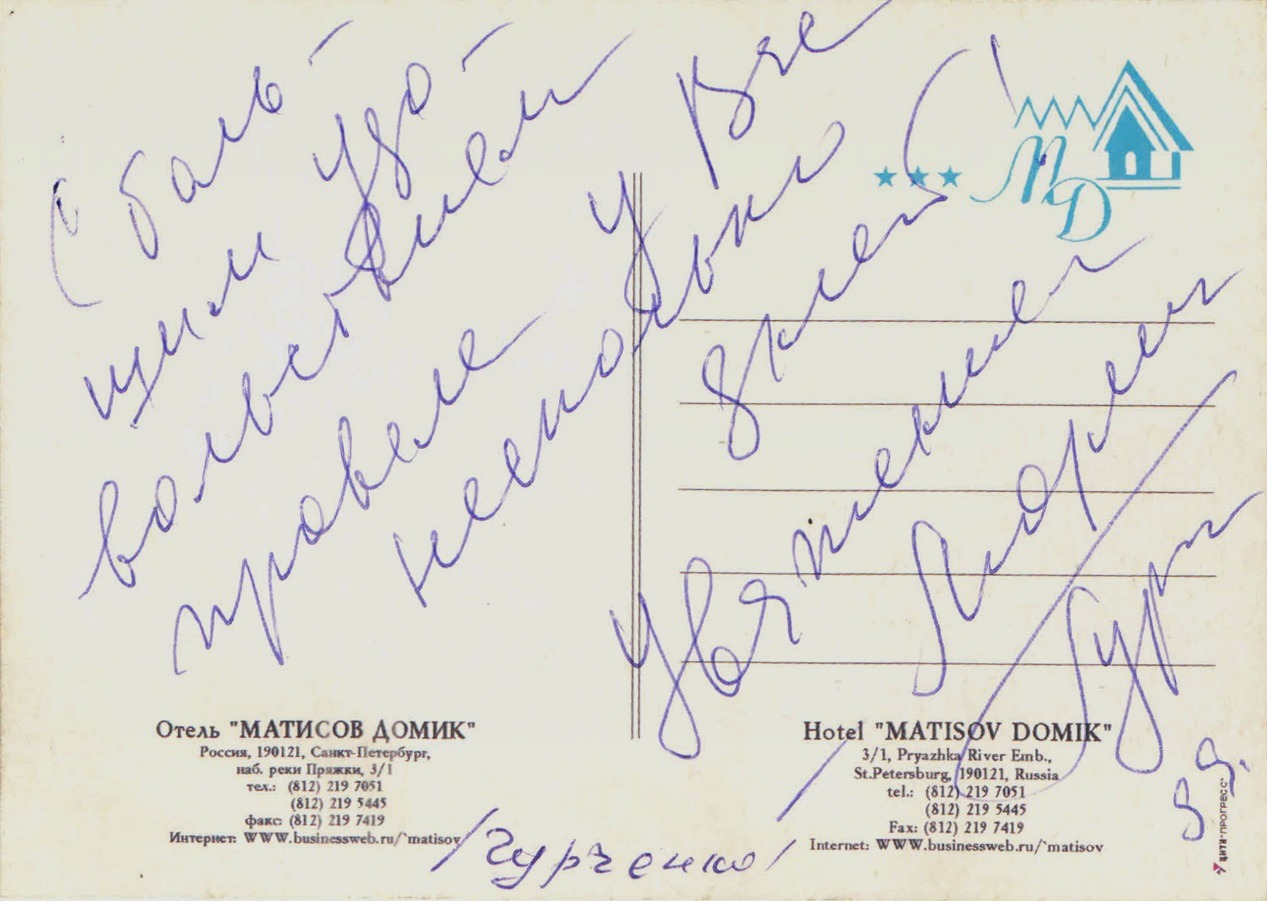 С боль-
шим удо-
вольствием
провела
У
время!
(Гурченко)
MD
Отель "МАТИСОВ ДОМИК"
Россия, 190121, Санкт-Петербург,
наб. реки Пряжки, 3/1
тел.: (812) 219 7051
(812) 219 5445
факс: (812) 219 7419
Интернет: WWW.businessweb.ru/~matisov
Hotel "MATISOV DOMIK"
3/1, Pryazhka River Emb.,
St.Petersburg, 190121, Russia
tel.: (812) 219 7051
(812) 219 5445
Fax: (812) 219 7419
Internet: WWW.businessweb.ru/~matisov
ЦИТИ"ПРОГРЕСС"